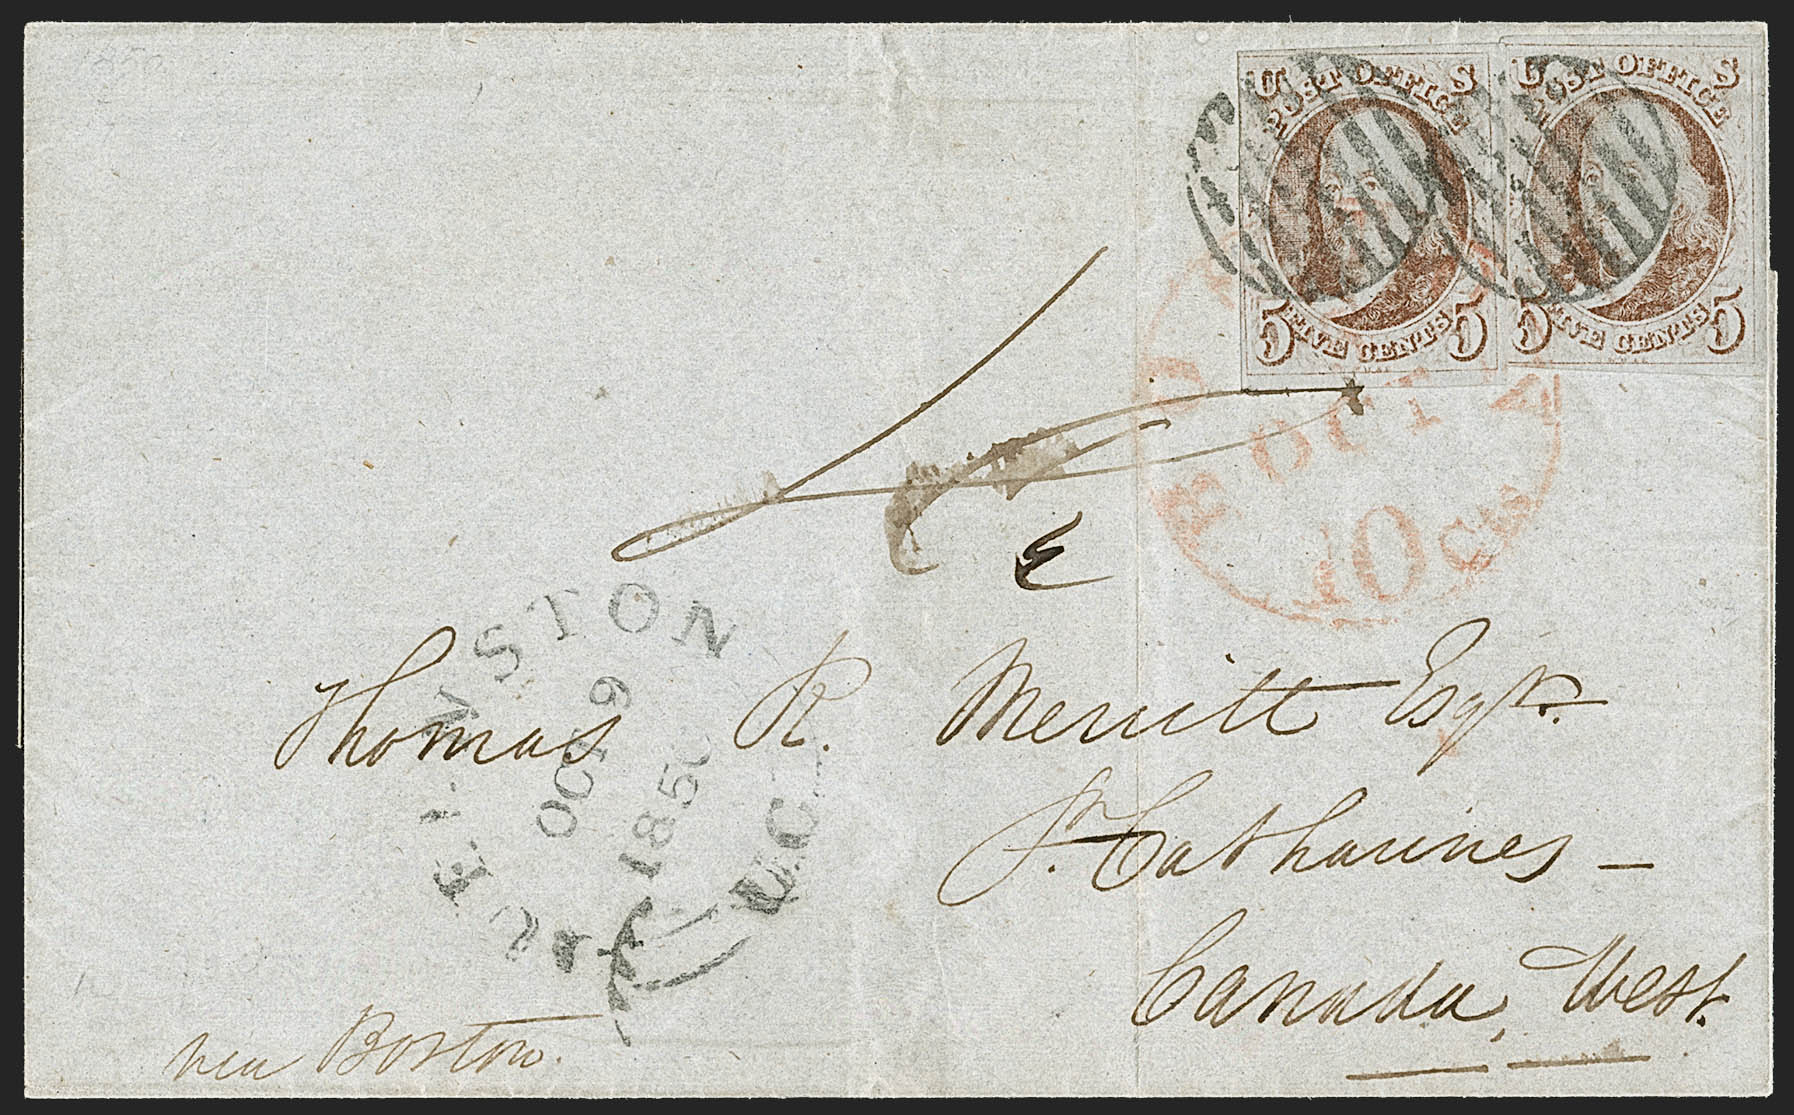 1850
U S
POST OFFICE
5 FIVE CENTS 5
U S
POST OFFICE
5 FIVE CENTS 5
OCT
10 cts
QUEENSTON
OCT 9
1850
U.C.
Thomas R. Merritt Esqr.
St. Catharines –
Canada, West.
via Boston.